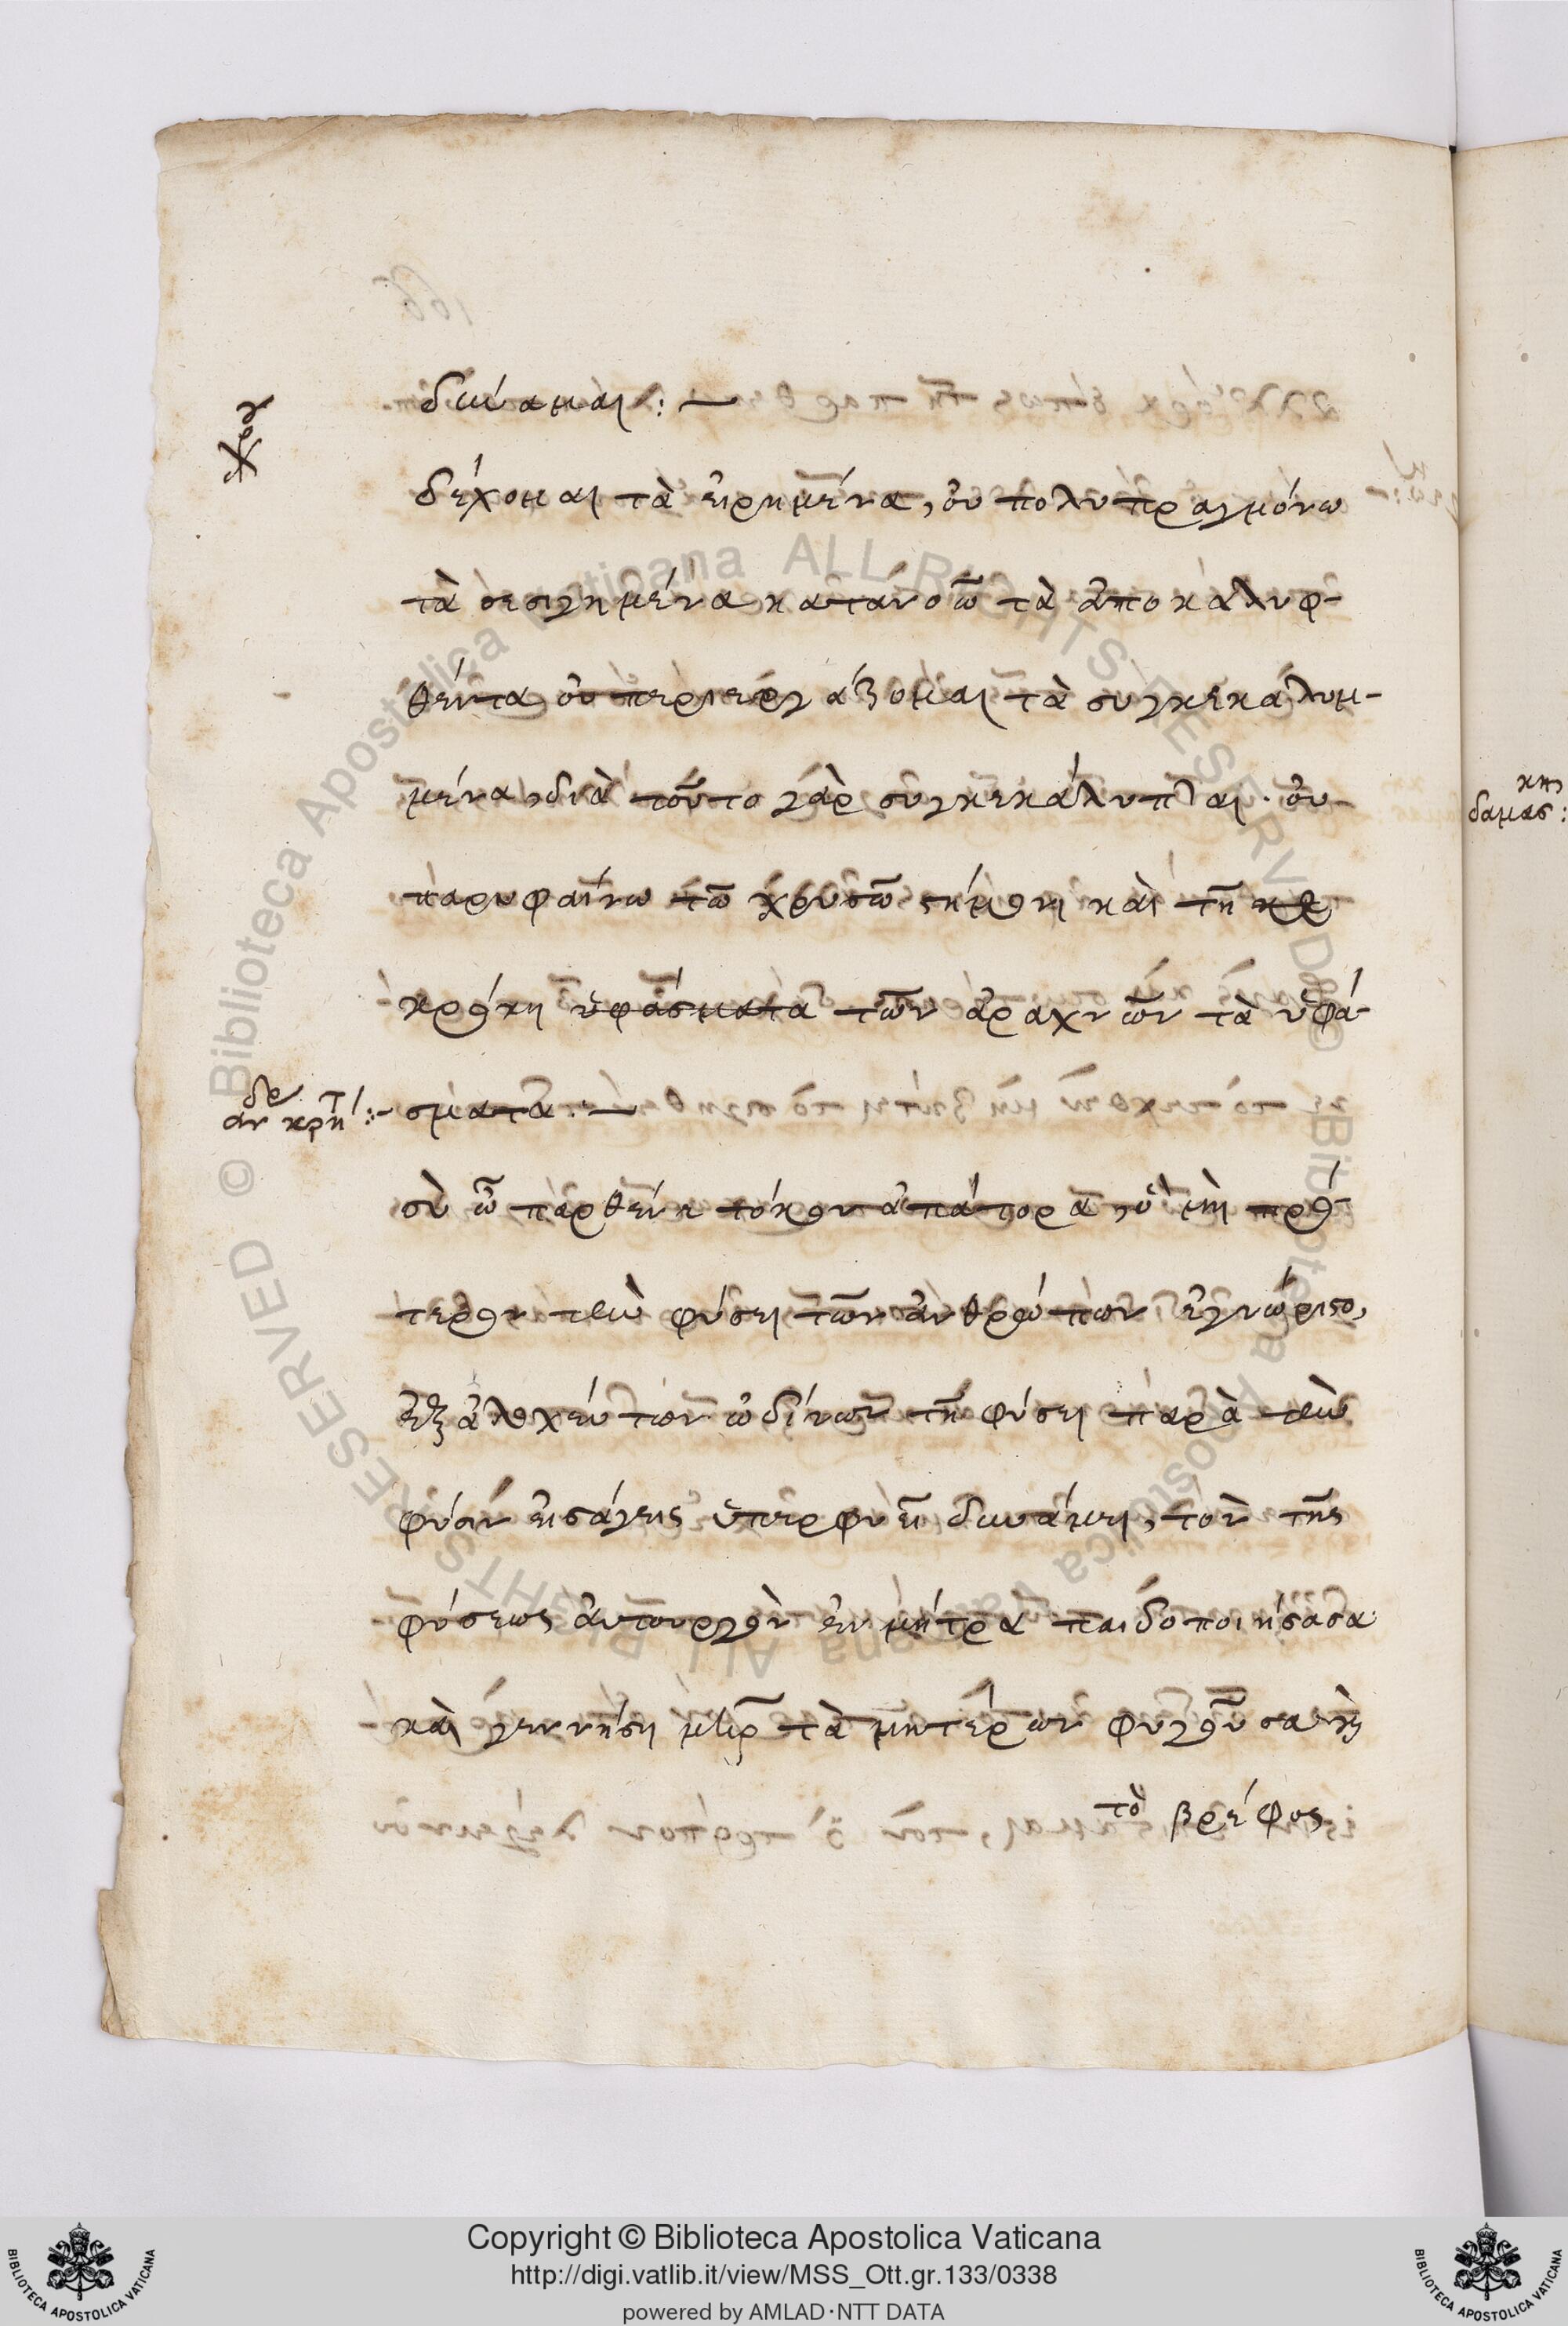 δύναμαι :—
δέχομαι τὰ εἰρημένα, οὐ πολυπραγμόνω
τὰ σεσιγημένα κατανοῶ τὰ ἀποκαλυφ-
θέντα οὐ περιεργάζομαι τὰ συγκεκαλυμ-
μένα, διὰ τοῦτο γὰρ συγκεκάλυπται. οὐ
παρυφαίνω τῶ χρυσῶ στήμονι καὶ τῆ
κρόκη ὑφάσματα τῶν ἀραχνῶν τὰ ὑφά-
δε τ
αν κρή :- σματα :—
σὺ ὦ παρθένε τόκον ἀπάτορα, ὃ μὴ πρό-
τερον τὴν φύσει τῶν ἀνθρώπων ἐγνώριστο,
ὠδίνων τῆ φύσει παρὰ τὴν
φύσιν εἰσάγεις ὑπερφυεῖ δυνάμει, τὸν τῆς
φύσεως αὐτουργὸν ἐν μήτρα παιδοποιήσασα
καὶ γεννήσει μὲν τὰ μητέρων φυγοῦσα
τὸ βρέφος
κης
δαμας:
Copyright © Biblioteca Apostolica Vaticana
http://digi.vatlib.it/view/MSS_Ott.gr.133/0338
powered by AMLAD·NTT DATA
BIBLIOTECA APOSTOLICA VATICANA
BIBLIOTECA APOSTOLICA VATICANA
Biblioteca Apostolica Vaticana ALL RIGHTS RESERVED ©
Biblioteca Apostolica Vaticana ALL RIGHTS RESERVED ©